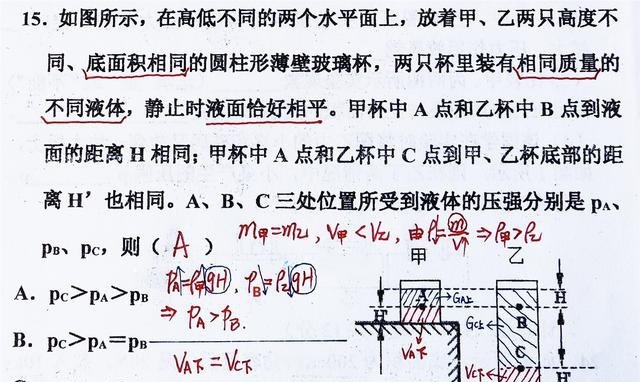 15. 如图所示，在高低不同的两个水平面上，放着甲、乙两只高度不
同、底面积相同的圆柱形薄壁玻璃杯，两只杯里装有相同质量的
不同液体，静止时液面恰好相平。甲杯中 A 点和乙杯中 B 点到液
面的距离 H 相同；甲杯中 A 点和乙杯中 C 点到甲、乙杯底部的距
离 H′ 也相同。A、B、C 三处位置所受到液体的压强分别是 pA、
pB、pC，则（ A ）
m甲=m乙，V甲<V乙，由ρ=m/V ⇒ρ甲>ρ乙
甲 乙
PA=ρ甲gH，PB=ρ乙gH
A. pC>pA>pB
⇒ PA>PB.
B. pC>pA=pB
VA下=VC下
A GA上 H
H′ GC上 B
VA下 C
VC下 H′